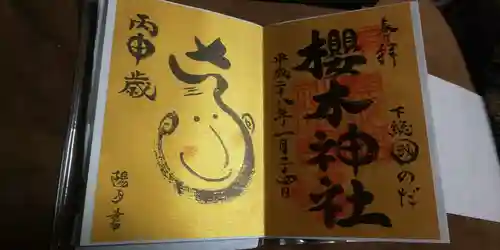 奉拝
下総国のだ
櫻木神社
平成二十八年一月二十四日
丙申歳